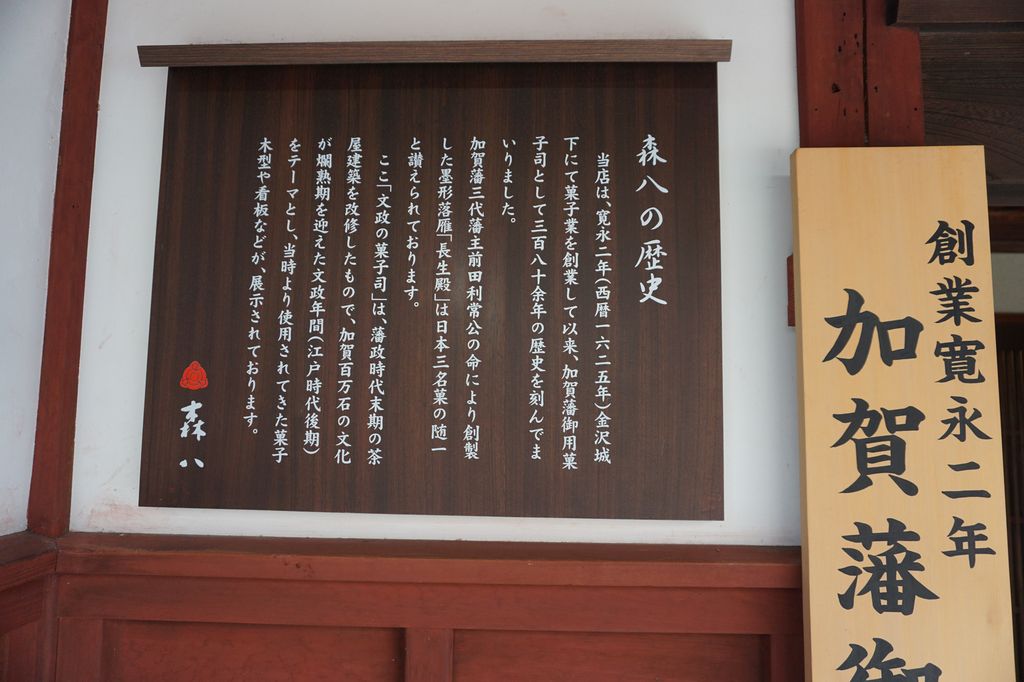 創業寛永二年
加賀藩御
森八の歴史
当店は、寛永二年(西暦一六二五年)金沢城
下にて菓子業を創業して以来、加賀藩御用菓
子司として三百八十余年の歴史を刻んでま
いりました。
加賀藩三代藩主前田利常公の命により創製
した墨形落雁「長生殿」は日本三名菓の随一
と讃えられております。
ここ「文政の菓子司」は、藩政時代末期の茶
屋建築を改修したもので、加賀百万石の文化
が爛熟期を迎えた文政年間(江戸時代後期)
をテーマとし、当時より使用されてきた菓子
木型や看板などが、展示されております。
森八